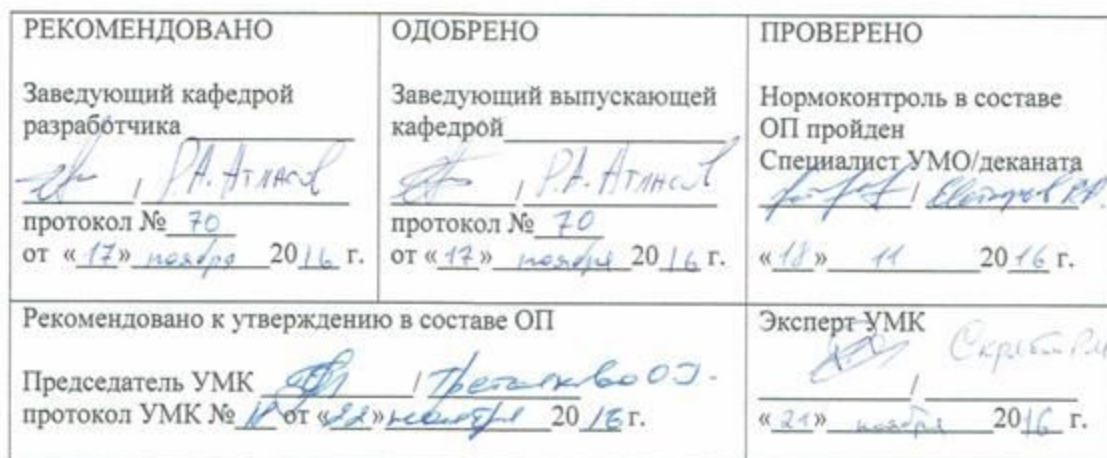 РЕКОМЕНДОВАНО
Заведующий кафедрой
разработчика
/ Р.А. Атласов
протокол № 70
от «17» ноября 2016 г.
ОДОБРЕНО
Заведующий выпускающей
кафедрой
/ Р.А. Атласов
протокол № 70
от «17» ноября 2016 г.
ПРОВЕРЕНО
Нормоконтроль в составе
ОП пройден
Специалист УМО/деканата
/
«18» 11 2016 г.
Рекомендовано к утверждению в составе ОП
Председатель УМК /
протокол УМК № от «22» ноября 2016 г.
Эксперт УМК
/
«21» ноября 2016 г.